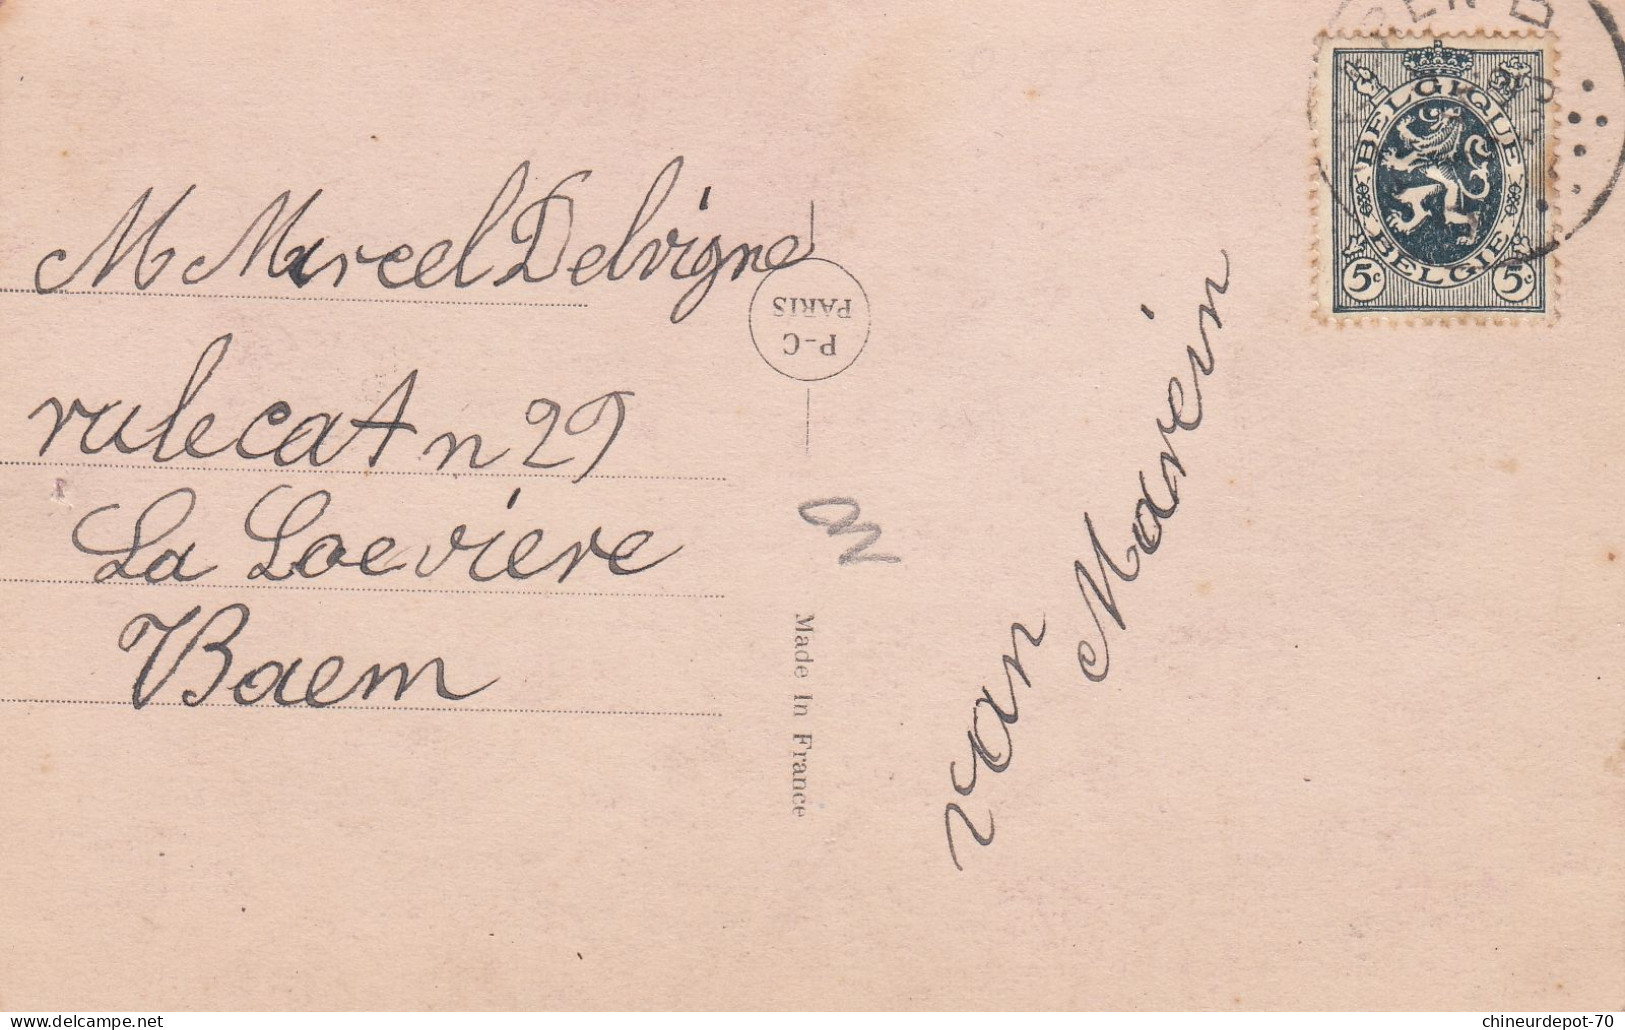 M Marcel Delvigne
rulecat n 29
La Loeviere
Baem
P-C
PARIS
Made In France
van
Marein
BELGIQUE
BELGIE
5c 5c
delcampe.net
chineurdepot-70